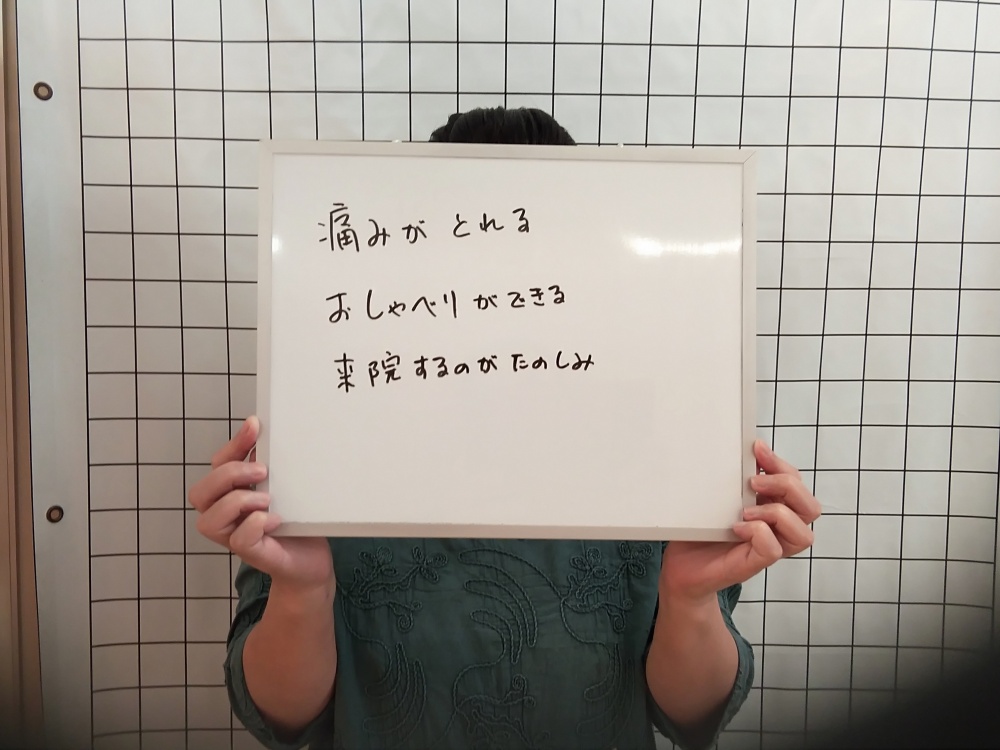 痛みがとれる
おしゃべりができる
来院するのがたのしみ